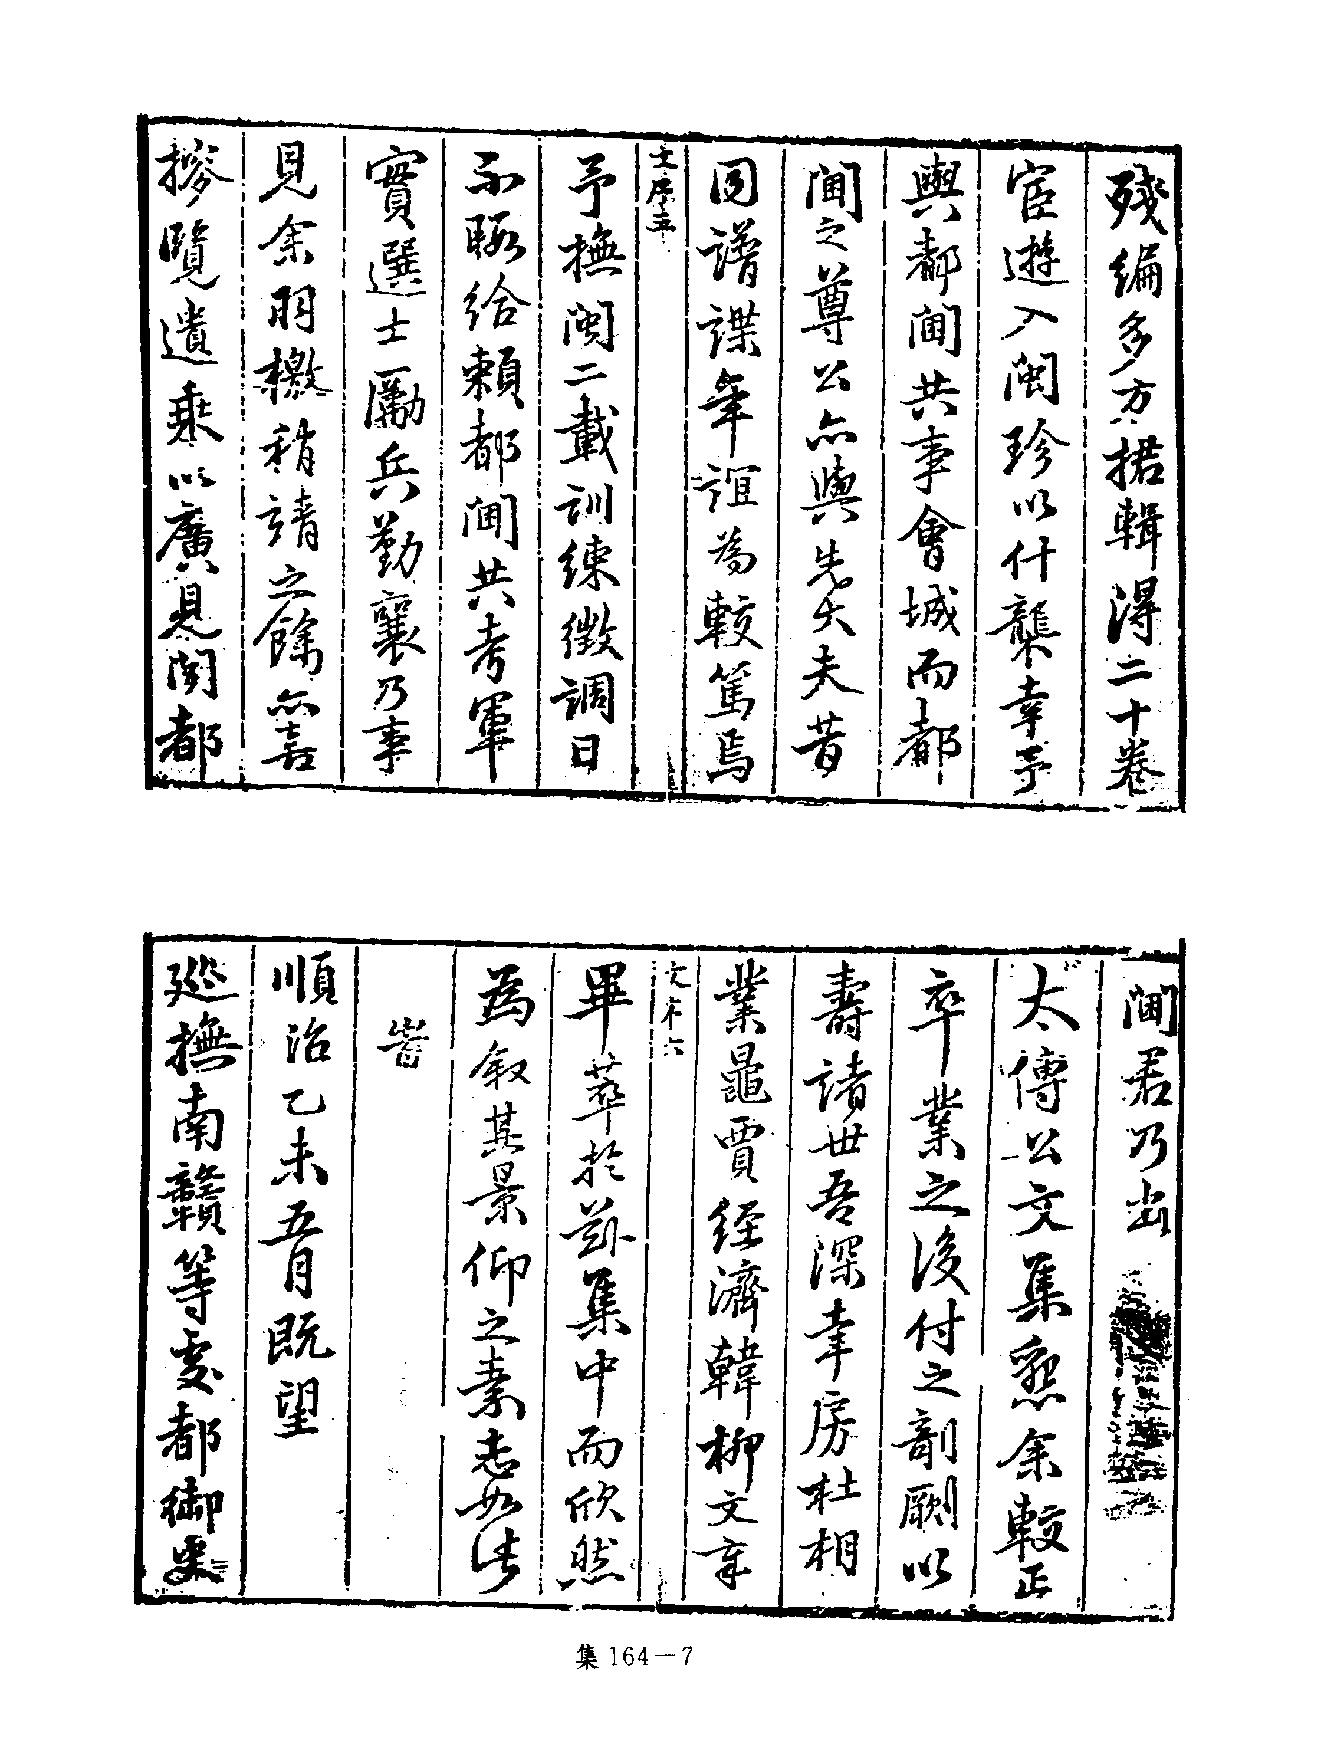 殘編多方捃輯得二十卷
宦遊入閩珍以什襲幸予
與都閫共事會城而都
閫之尊公亦與先大夫昔
同譜諜年誼為較篤焉
文序五
予撫閩二載訓練徵調日
不暇給賴都閫共考軍
實選士勵兵勤襄乃事
見余羽檄稍靖之餘亦喜
摉覽遺乘以廣見聞都
閫君乃出
太傅公文集懇余較正
卒業之後付之剞劂以
壽諸世吾深幸房杜相
業鼂賈經濟韓柳文章
文序六
畢萃於茲集中而欣然
為叙其景仰之素志如此
時
順治乙未五月既望
巡撫南贛等處都御史
集 164－7